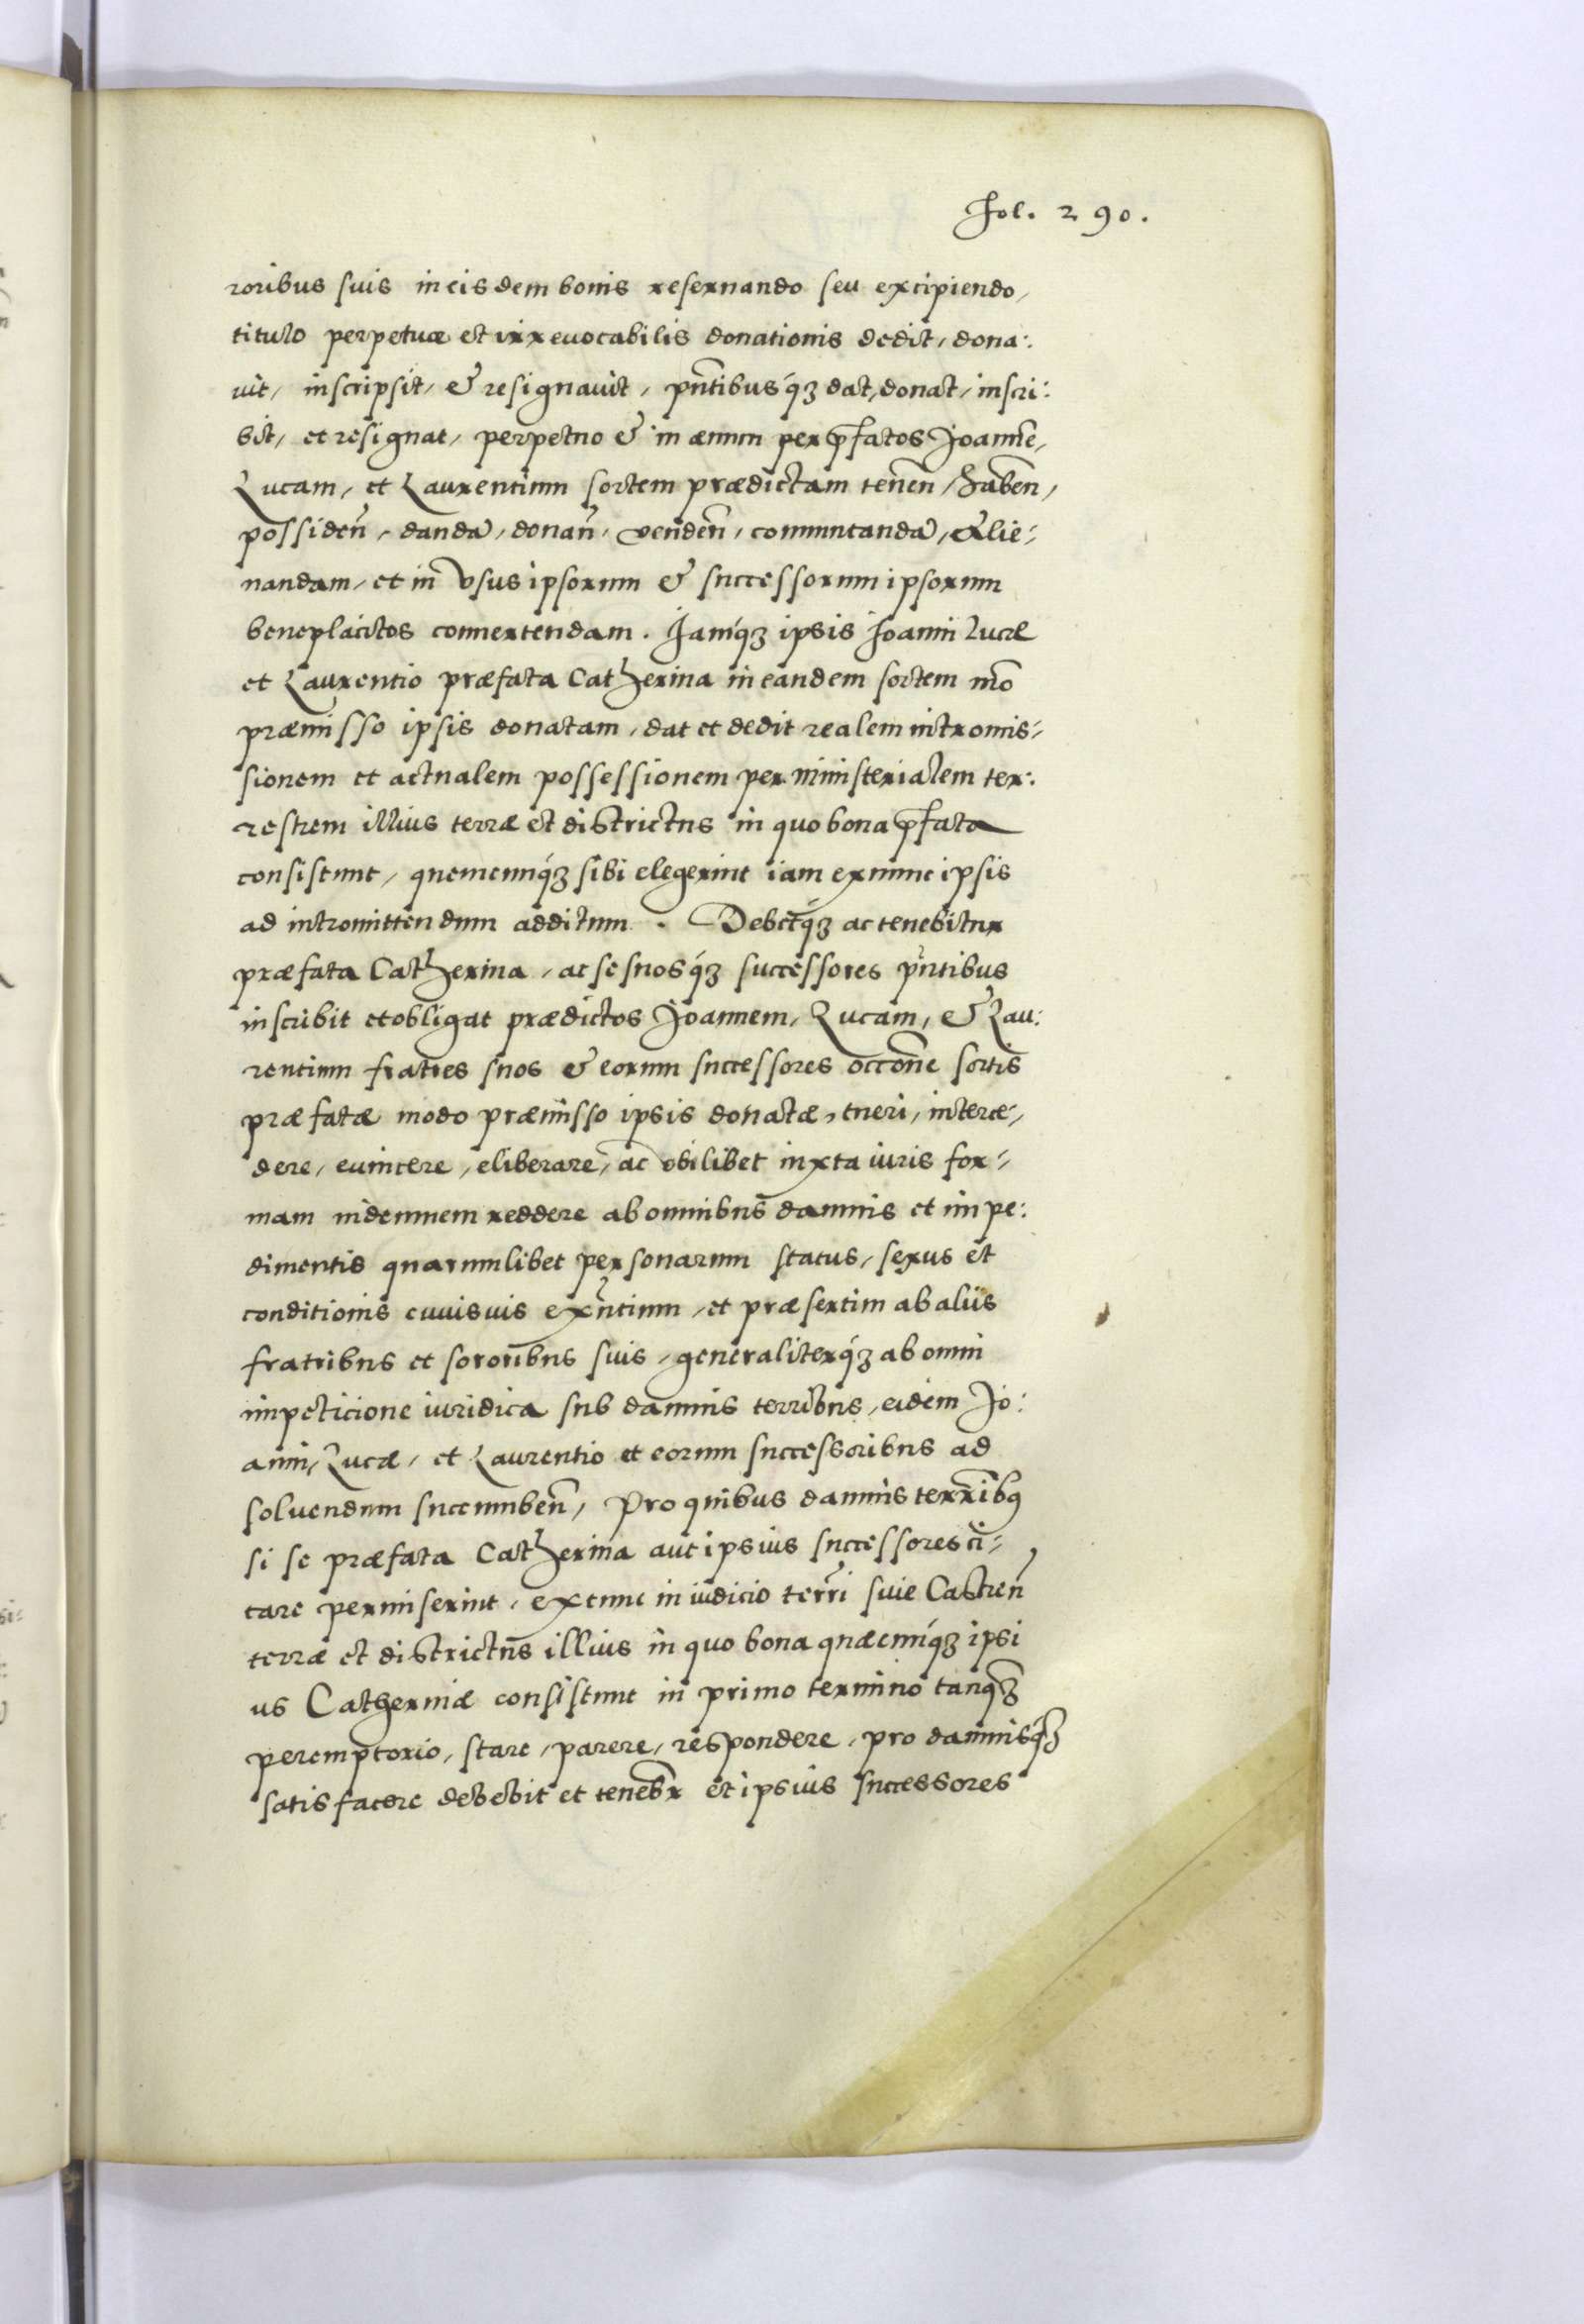 Fol. 290.
roribus suis in eisdem bonis reseruando seu excipiendo,
titulo perpetuæ et irreuocabilis donationis dedit, dona:
uit, inscripsit, & resignauit, pñtibusq́ꝫ dat, donat, inscri:
bit, et resignat, perpetuo & in æuum per p̄fatos Joannē,
Lucam, et Laurentium sortem prædictam teneñ, habeñ,
possideñ, dandā, donañ, vendeñ, commutandā, & alie:
nandam, et in vsus ipsorum & successorum ipsorum
beneplacitos conuertendam. Jamq́ꝫ ipsis Joanni Lucæ
et Laurentio præfata Catherina in eandem sortem mõ
præmisso ipsis donatam, dat et dedit realem intromis:
sionem et actualem possessionem per ministerialem ter:
restrem illius terræ et districtus in quo bona p̄fata
consistunt, quemcumq́ꝫ sibi elegerint iam ex nunc ipsis
ad intromittendum additum. Debetq́ꝫ ac tenebitur
præfata Catherina, ac se suosq́ꝫ successores pñtibus
inscribit et obligat prædictos Joannem, Lucam, & Lau:
rentium fratres suos & eorum successores occõne sortis
præfatæ modo præmisso ipsis donatæ, tueri, interce,
dere, euincere, eliberare, ac vbilibet iuxta iuris for:
mam indemnem reddere ab omnibus damnis et impe:
dimentis quarumlibet personarum status, sexus et
conditionis cuiusuis exñtium, et præsertim ab aliis
fratribus et sororibus suis, generaliterq́ꝫ ab omni
impeticione iuridica sub damnis terribus, eidem Jo:
anni, Lucæ, et Laurentio et eorum successoribus ad
soluendum succumbeñ, Pro quibus damnis terr̃ibꝯ
si se præfata Catherina aut ipsius successores ci:
tare permiserint, extunc in iudicio terrĩ siue Castreñ
terræ et districtus illius in quo bona quæcunq́ꝫ ipsi
us Catherinæ consistunt in primo termino tanq̄ꝫ
peremptorio, stare, parere, respondere, pro damnisq́ꝫ
satisfacere debebit et tenebr̃ et ipsius successores